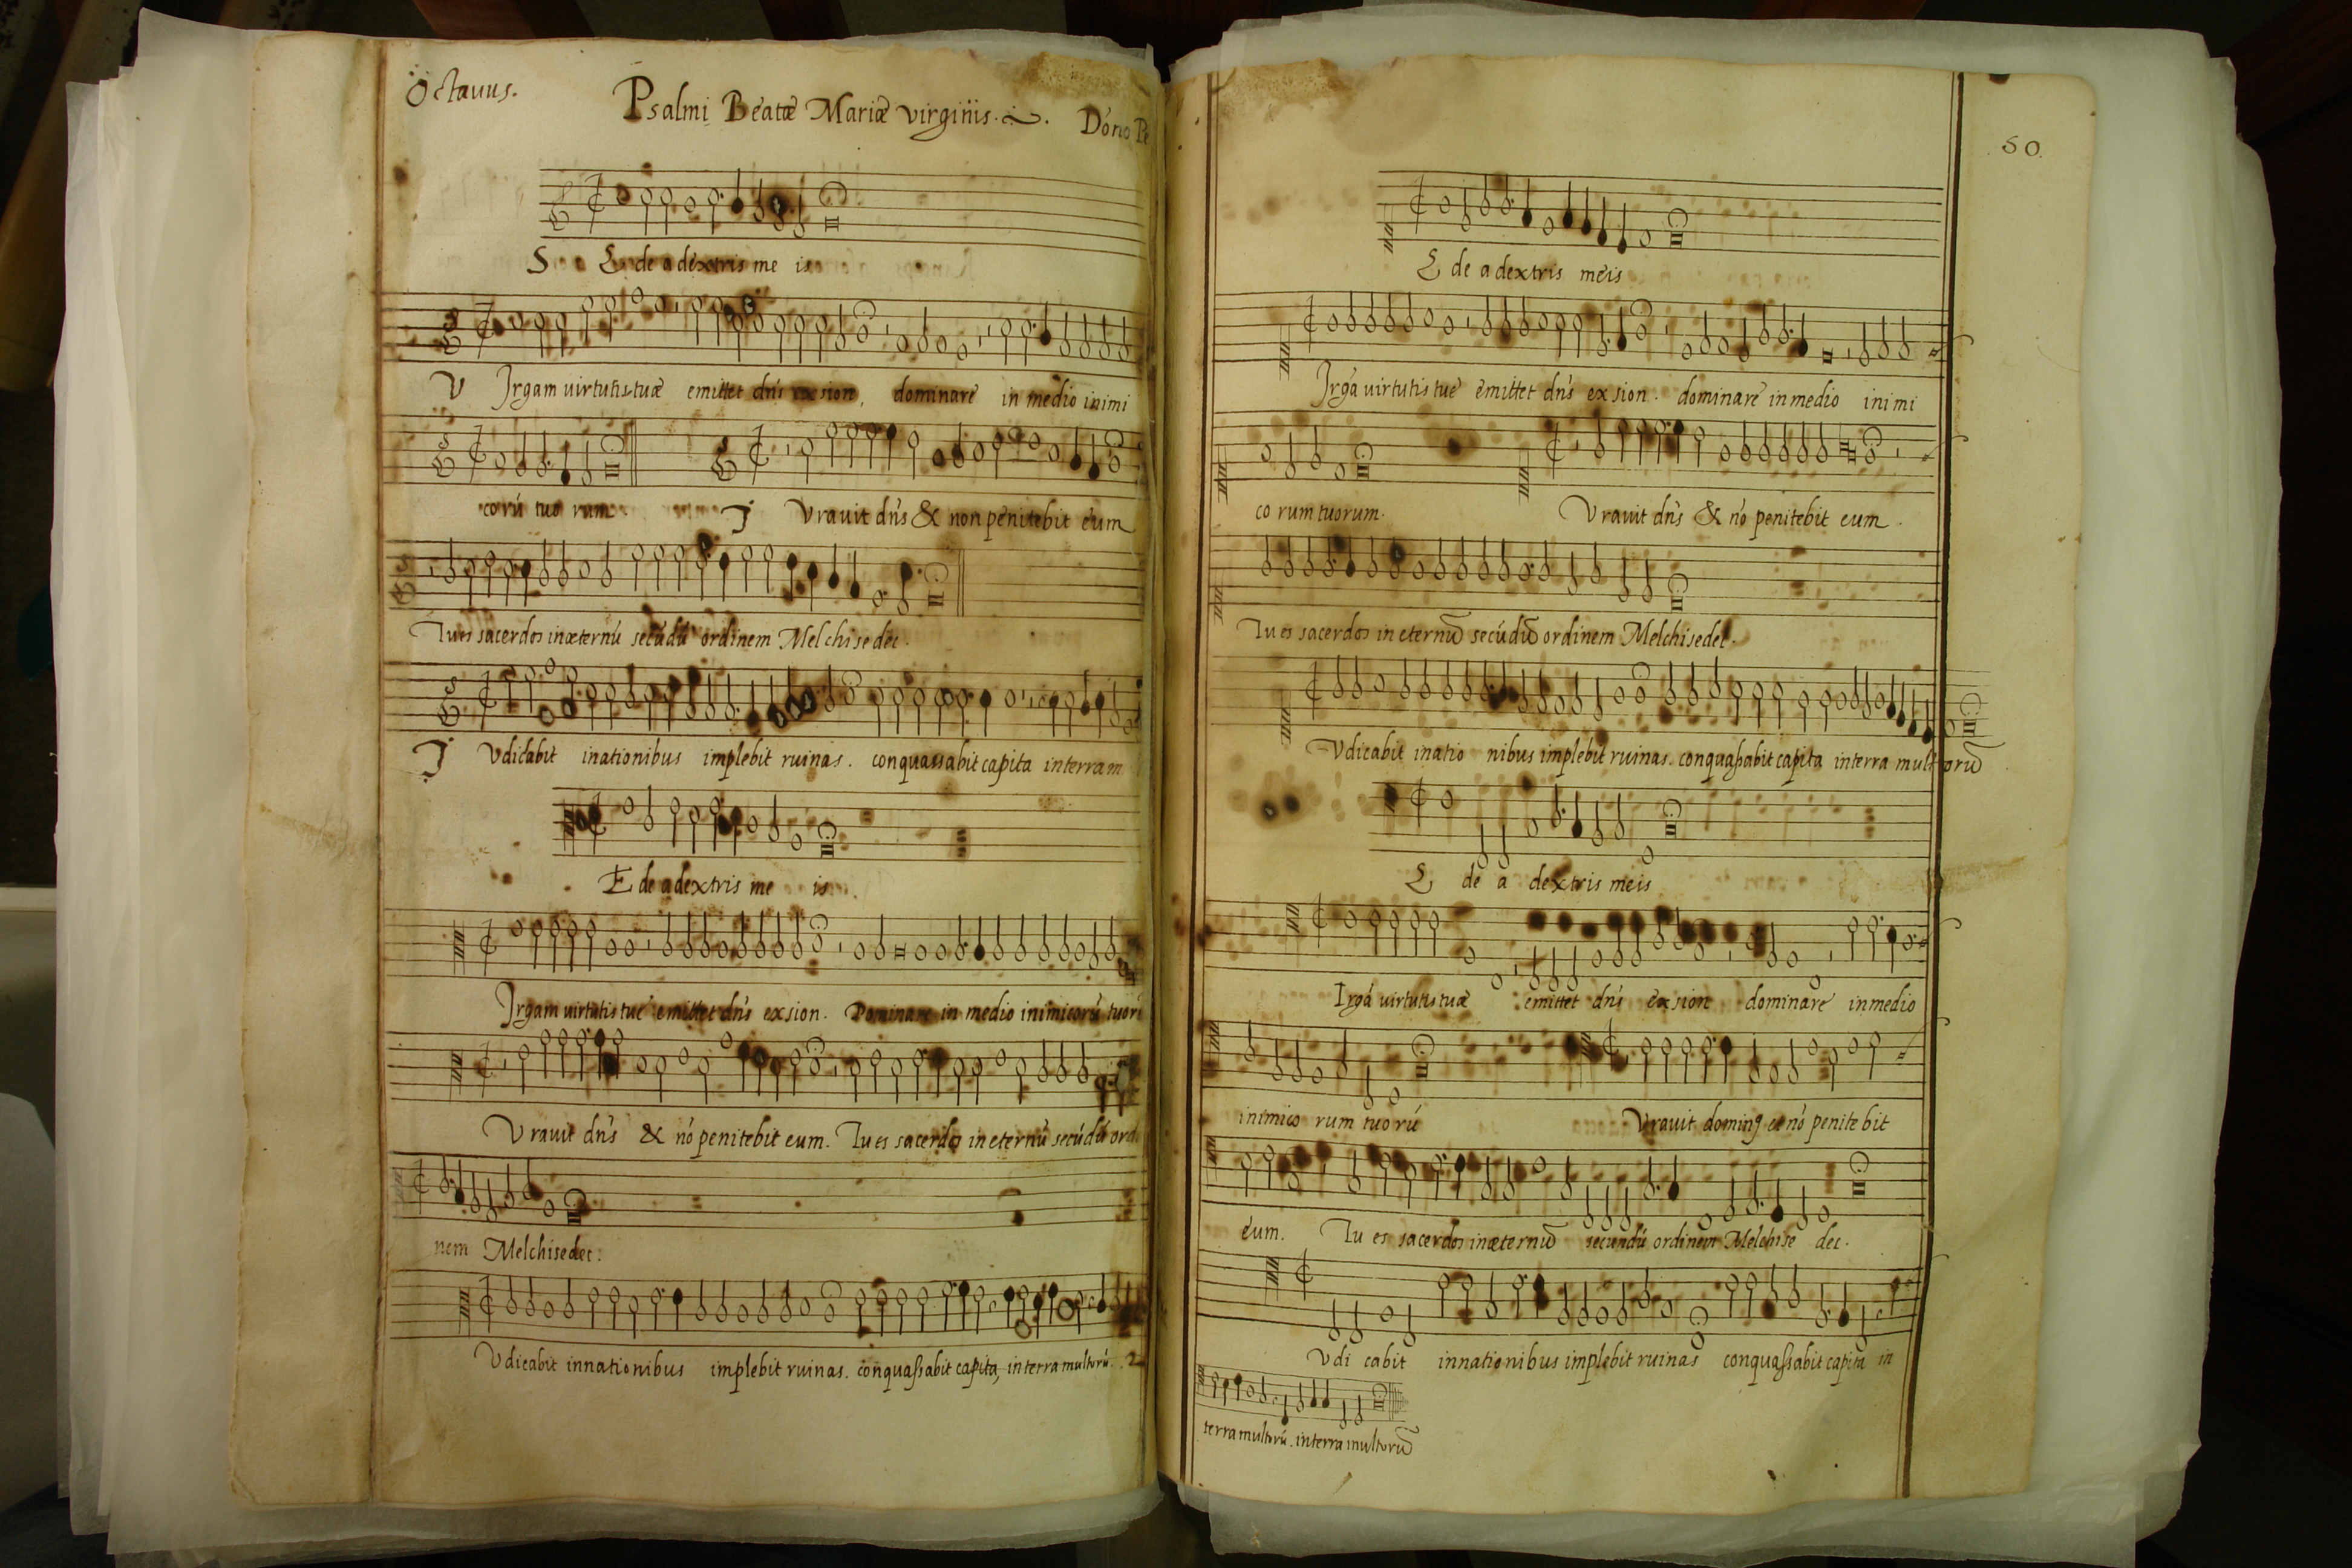 Octavus.
Psalmi Beatæ Mariæ virginis. Dono Pe
S Ede a dextris me is
V Irgam virtutis tuæ emittet dñs ex sion, dominare in medio inimi
corú tuo rum. J Vravit dñs & non penitebit eum
Tu es sacerdos in æternú secúdú ordinem Melchisedec.
J Vdicabit in ationibus implebit ruinas. conquassabit capita in terram
Ede a dextris me is.
Irgam virtutis tue emittet dñs ex sion. Dominare in medio inimicorú tuorú
Vravit dñs & nó penitebit eum. Tu es sacerdos in eternú secúdú ordi
nem Melchisedec.
Vdicabit in nationibus implebit ruinas. conquaßabit capita, in terra multorú. 2
50.
Ede a dextris meis
Irgá virtutis tue emittet dñs ex sion. dominare in medio inimi
co rum tuorum. Vravit dñs & nó penitebit eum.
Tu es sacerdos in eternũ secúdũ ordinem Melchisedec.
Vdicabit in atio nibus implebit ruinas. conquaßabit capita in terra mult orũ
Ede a dextris meis
Irgá virtutis tuæ emittet dñs ex sion dominare in medio
inimico rum tuorú Vravit doming et nó penite bit
eum. Tu es sacerdos in æternũ secundú ordinem Melchise dec.
Vdi cabit in nationibus implebit ruinas conquaßabit capita in
terra multorú. in terra multorũ